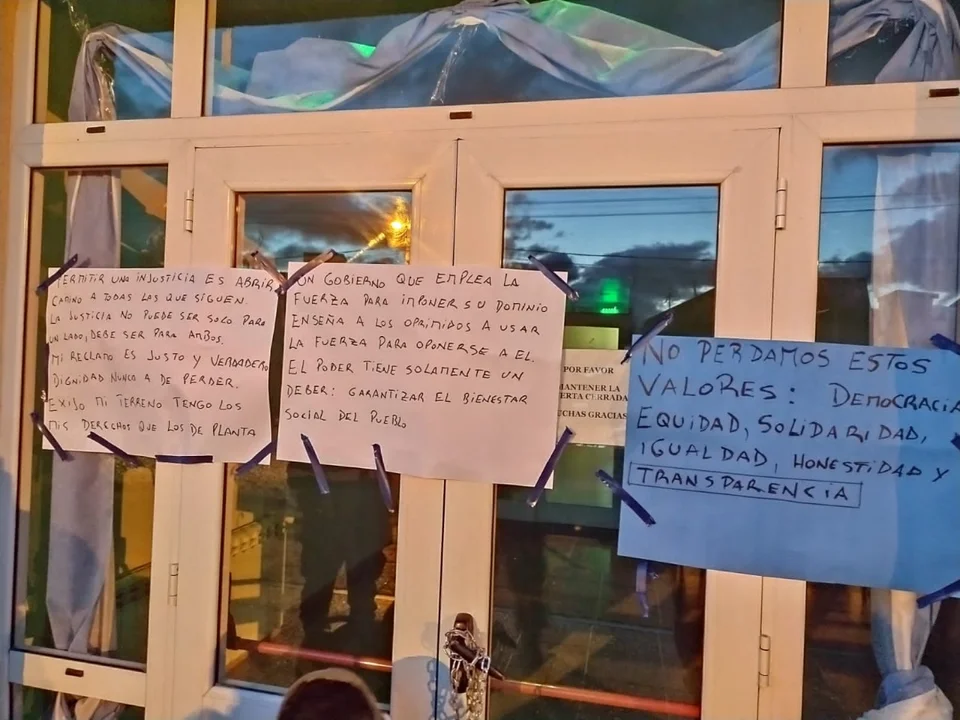 PERMITIR UNA INJUSTICIA ES ABRIR
CAMINO A TODAS LAS QUE SIGUEN.
LA JUSTICIA NO PUEDE SER SOLO PARA
UN LADO, DEBE SER PARA AMBOS.
MI RECLAMO ES JUSTO Y VERDADERO
DIGNIDAD NUNCA A DE PERDER.
EXIJO MI TERRENO TENGO LOS
MIS DERECHOS QUE LOS DE PLANTA
UN GOBIERNO QUE EMPLEA LA
FUERZA PARA IMPONER SU DOMINIO
ENSEÑA A LOS OPRIMIDOS A USAR
LA FUERZA PARA OPONERSE A EL.
EL PODER TIENE SOLAMENTE UN
DEBER: GARANTIZAR EL BIENESTAR
SOCIAL DEL PUEBLO
POR FAVOR
MANTENER LA
CERRADA
GRACIAS
NO PERDAMOS ESTOS
VALORES: DEMOCRACIA
EQUIDAD, SOLIDARIDAD,
IGUALDAD, HONESTIDAD Y
TRANSPARENCIA